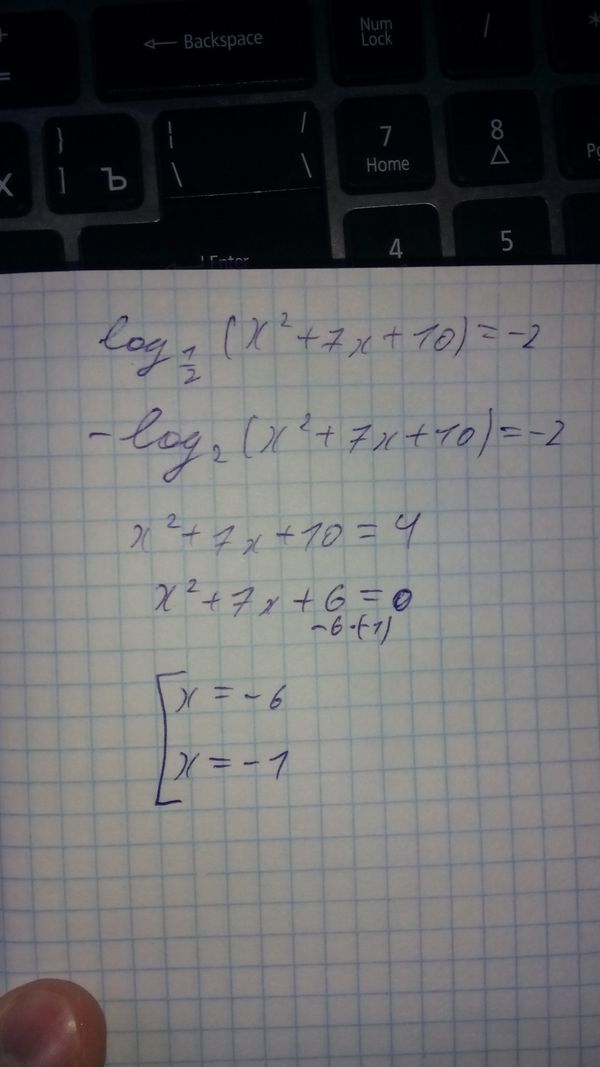 +
=
← Backspace
Num
Lock
/
*
}
] Ъ
X
¦ /
\ \
7
Home
8
△
4
5
log_{1/2} (x² + 7x + 10) = -2
- log₂ (x² + 7x + 10) = -2
x² + 7x + 10 = 4
x² + 7x + 6 = 0
-6·(-1)
[ x = -6
x = -1